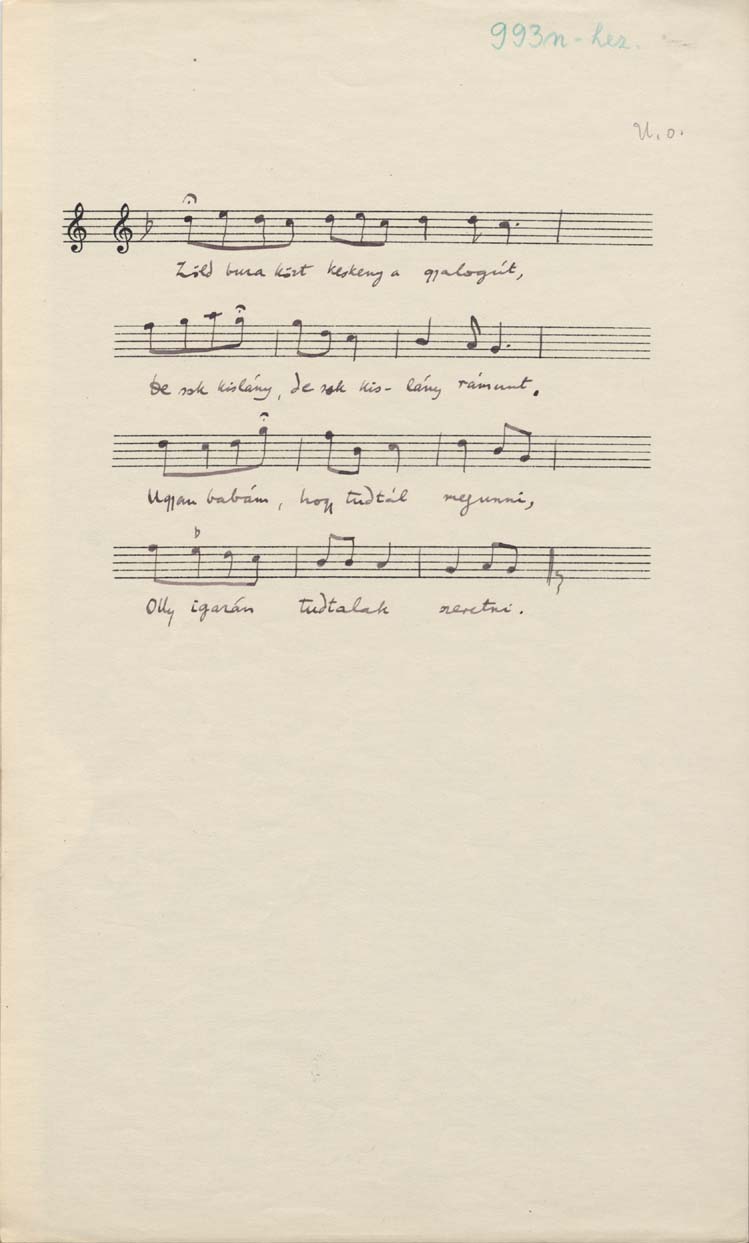 993n-hez.
U.o.
Zöld buza közt keskeny a gyalogút,
De sok kislány, de sok kis- lány rámunt.
Ugyan babám, hogy tudtál megunni,
Olly igazán tudtalak szeretni.